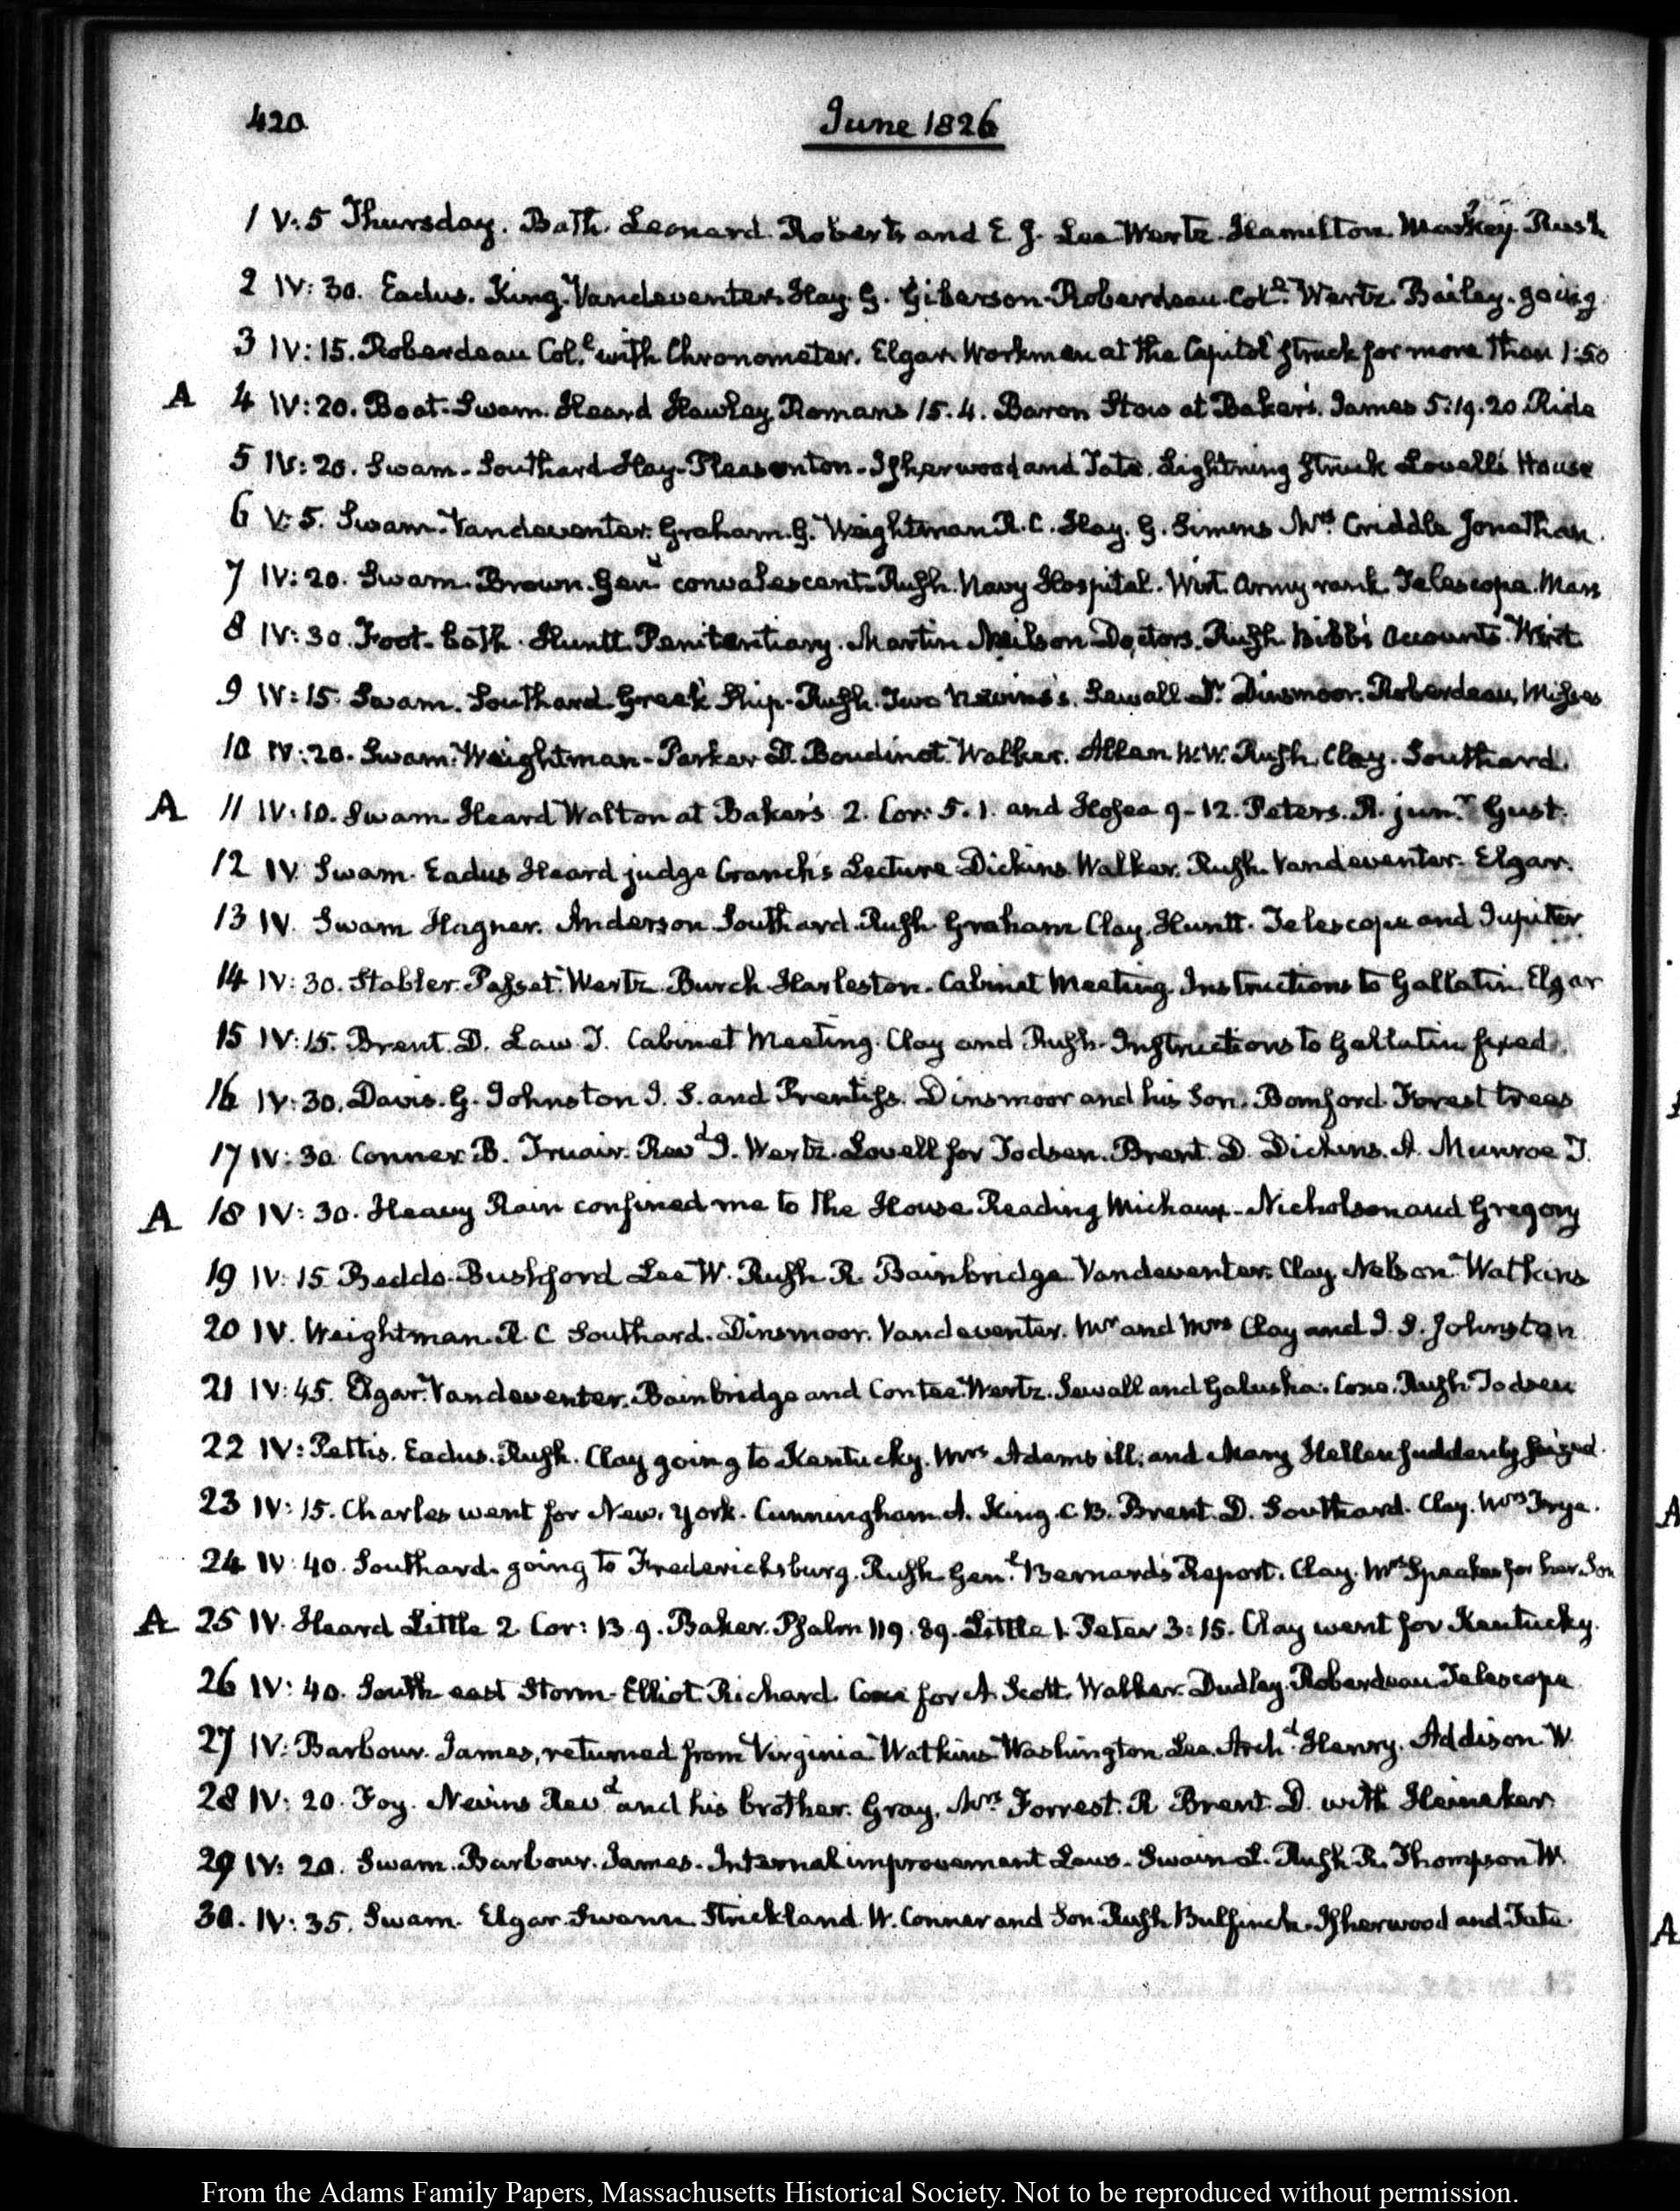 420
June 1826
1 V:5 Thursday. Bath. Leonard. Roberts and E. J. Lee. Wertz. Hamilton. Markey. Rush
2 IV:30. Eadus. King. Vandeventer. Hay. G. Giberson. Roberdeau. Col.l Wertz. Bailey. going
3 IV:15. Roberdeau Col.l with Chronometer. Elgar. Workmen at the Capitol struck for more than 1:50
A 4 IV:20. Boat. Swam. Heard Hawley Romans 15.4. Baron Stow at Baker's. James 5:19.20. Ride
5 IV:20. Swam. Southard. Hay. Pleasonton. Isherwood and Tate. Lightning struck Lovell's House
6 V:5. Swam. Vandeventer. Graham. G. Weightman R. C. Hay. G. Simms Mrs. Criddle Jonathan.
7 IV:20. Swam. Brown. Gen.l convalescent. Rush. Navy Hospital. Wirt. Army rank. Telescope. Mars
8 IV:30. Foot-bath. Huntt. Penitentiary. Martin Neilson Doctors. Rush. Bibb's Accounts. Wirt
9 IV:15. Swam. Southard. Greek Ship. Rush. Two Nevins's. Sewall Dr. Dinsmoor. Roberdeau, Misses
10 IV:20. Swam. Weightman. Parker D. Boudinot. Walker. Allen W.W. Rush, Clay. Southard.
A 11 IV:10. Swam. Heard Walton at Baker's 2. Cor: 5.1. and Hosea 9-12. Peters. R. jun.r Gust.
12 IV. Swam. Eadus. Heard judge Cranch's Lecture. Dickins. Walker. Rush. Vandeventer. Elgar.
13 IV. Swam. Hagner. Anderson. Southard. Rush. Graham. Clay. Huntt. Telescope and Jupiter.
14 IV:30. Stabler. Passet. Wertz. Burch. Harleston. Cabinet Meeting. Instructions to Gallatin. Elgar
15 IV:15. Brent. D. Law. T. Cabinet Meeting. Clay and Rush. Instructions to Gallatin fixed.
16 IV:30. Davis. G. Johnston J. S. and Prentiss. Dinsmoor and his Son. Bomford. Forest trees
17 IV:30. Conner. B. Truair. Revd J. Wertz. Lovell for Todsen. Brent. D. Dickins. A. Munroe T.
A 18 IV:30. Heavy Rain confined me to the House. Reading Michaux. Nicholson and Gregory
19 IV:15. Beddo. Bushford. Lee W. Rush R. Bainbridge. Vandeventer. Clay. Nelson. Watkins
20 IV. Weightman. R. C. Southard. Dinsmoor. Vandeventer. Mr and Mrs Clay and J. S. Johnston
21 IV:45. Elgar. Vandeventer. Bainbridge and Contee. Wertz. Sewall and Galusha. Coxe. Rush. Todsen
22 IV: Pettis. Eadus. Rush. Clay going to Kentucky. Mrs Adams ill; and Mary Hellen suddenly seized.
23 IV:15. Charles went for New. York. Cunningham. A. King. C. B. Brent. D. Southard. Clay. Mrs Frye.
24 IV:40. Southard. going to Fredericksburg. Rush. Gen.l Bernard's Report. Clay. Mrs Speakes for her Son
A 25 IV. Heard Little 2 Cor: 13.9. Baker. Psalm 119.89. Little 1 Peter 3:15. Clay went for Kentucky.
26 IV:40. South east Storm. Elliot Richard. Coxe for A. Scott. Walker. Dudley. Roberdeau. Telescope
27 IV: Barbour. James, returned from Virginia. Watkins. Washington. Lee. Archd Henry. Addison W.
28 IV:20. Foy. Nevins Revd and his brother. Gray, Mrs Forrest. R. Brent. D. with Heineker.
29 IV:20. Swam. Barbour. James. Internal improvement Laws. Swain L. Rush R. Thompson W.
30. IV:35. Swam. Elgar. Swann. Strickland. W. Conner and Son. Rush. Bulfinch. Isherwood and Tate.
From the Adams Family Papers, Massachusetts Historical Society. Not to be reproduced without permission.